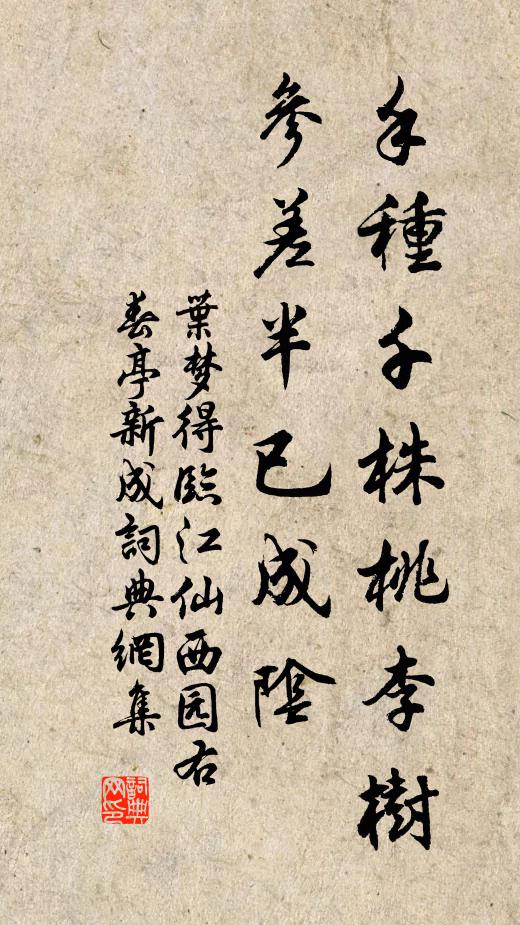 手種千株桃李樹
參差半已成陰
葉梦得臨江仙西园右
春亭新成詞典網集
詞典
网印